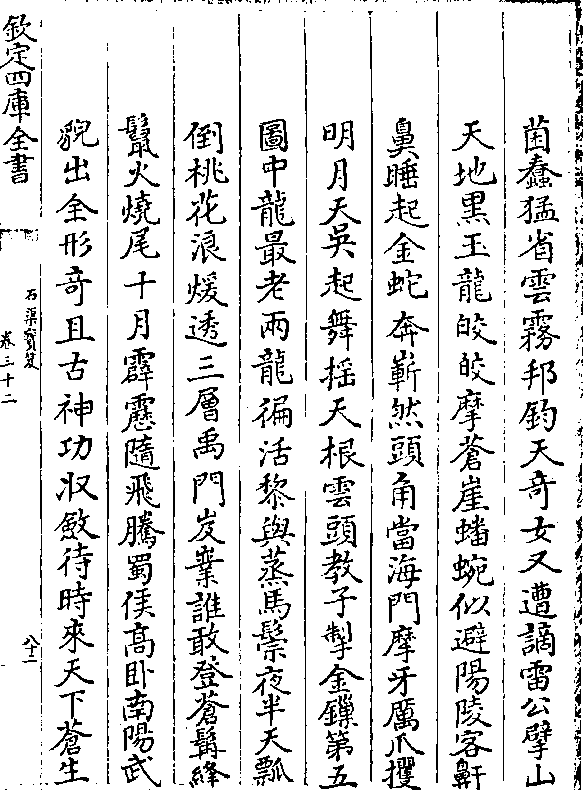 菌蠢猛省雲霧邦鈞天奇女又遭謫雷公擘山
天地黒玉龍皎皎摩蒼崖蟠蜿似避陽陵客鼾
鼻睡起金蛇奔嶄然頭角當海門摩牙厲爪攫
明月天吳起舞揺天根雲頭教子掣金鏁第五
圖中龍最老兩龍徧活黎與蒸馬鬃夜半天瓢
倒桃花浪煖透三層禹門岌嶪誰敢登蒼髯絳
鬣火燒尾十月霹靂隨飛騰蜀侯高卧南陽武
貌出全形奇且古神功收斂待時來天下蒼生
欽定四庫全書
石渠寳笈
卷三十二
八十二